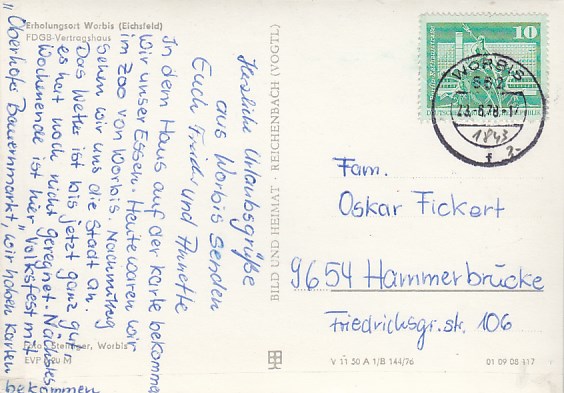 Erholungsort Worbis (Eichsfeld)
FDGB-Vertragshaus
Herzliche Urlaubsgrüße
aus Worbis senden
Euch Friedel und Annette
In dem Haus auf der Karte bekommen
wir unser Essen. Heute waren wir
im Zoo von Worbis. Nachmittag
sehen wir uns die Stadt an.
Das Wetter ist bis jetzt ganz gut,
es hat noch nicht geregnet. Nächstes
Wochenende ist hier Volksfest mit
"Oberhofer Bauernmarkt", wir haben Karten
bekommen
Foto: Steiniger, Worbis
EVP 0,20 M
BILD UND HEIMAT REICHENBACH (VOGTL)
10
WORBIS
562
23.-6.78.-17
f
1843
2-
Fam.
Oskar Fickert
9654 Hammerbrücke
Friedrichsgr. str. 106
V 11 50 A 1/B 144/76
01 09 08 117